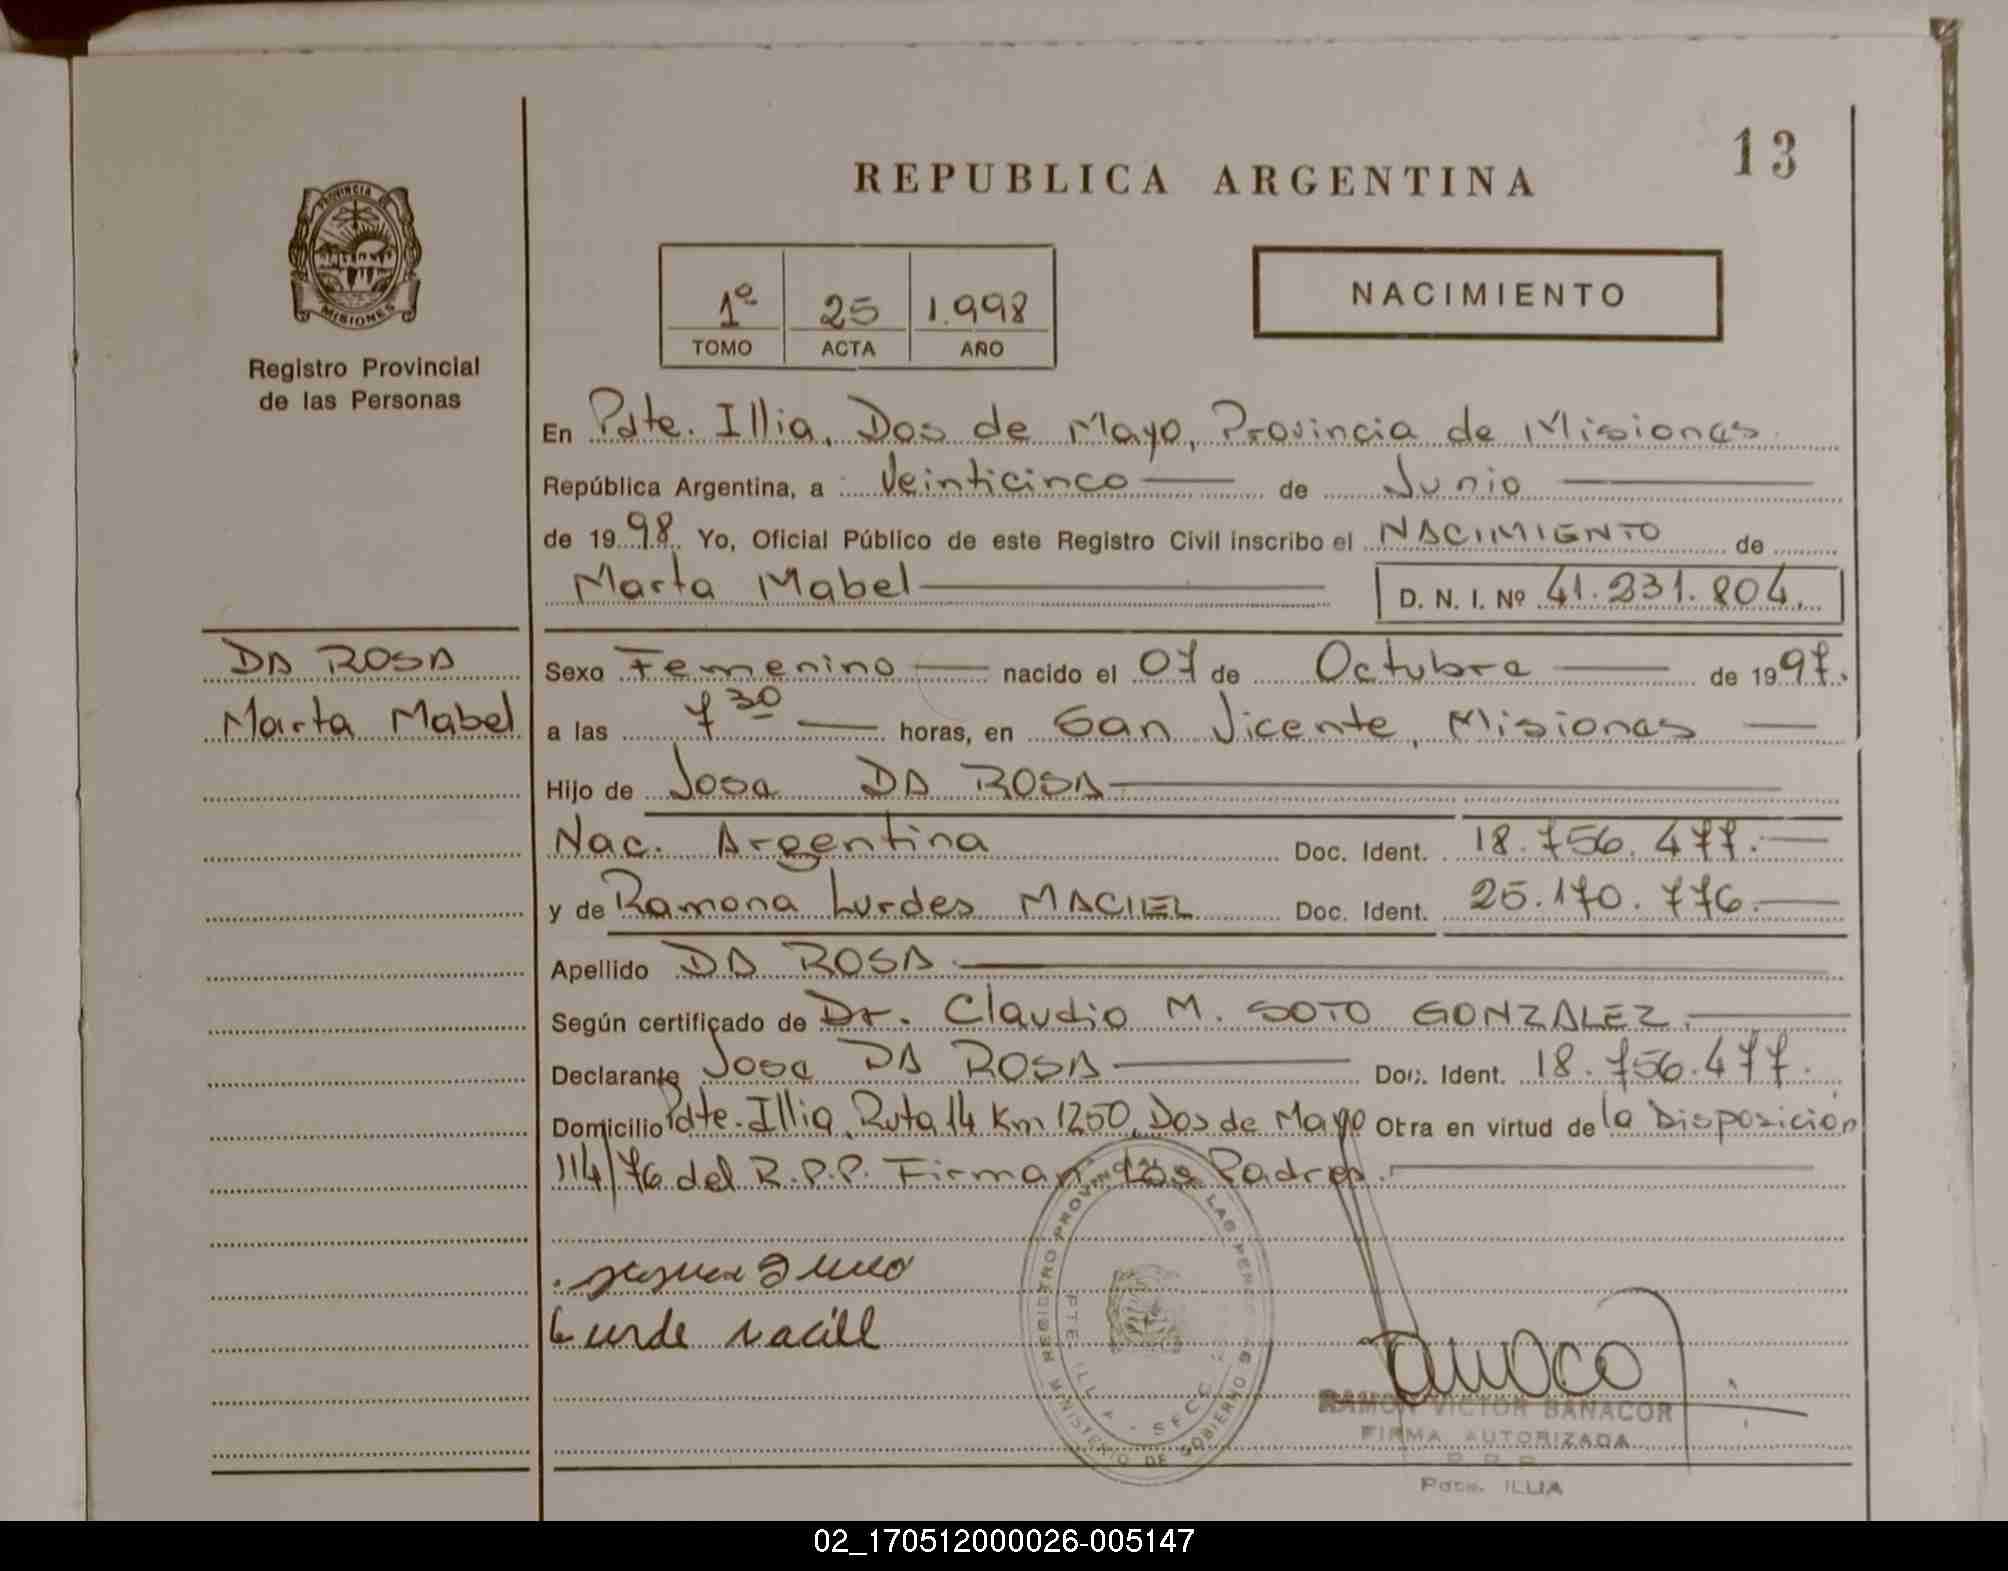 13
REPUBLICA ARGENTINA
PROVINCIA DE
MISIONES
Registro Provincial
de las Personas
1º 25 1.998
TOMO ACTA AÑO
NACIMIENTO
En Pdte. Illia, Dos de Mayo, Provincia de Misiones.
República Argentina, a Veinticinco de Junio
de 1998 Yo, Oficial Público de este Registro Civil inscribo el NACIMIENTO de
Marta Mabel D. N. I. Nº 41.231.804.
DA ROSA
Marta Mabel
Sexo Femenino nacido el 07 de Octubre de 1997.
a las 7 30 horas, en San Vicente, Misiones
Hijo de Jose DA ROSA
Nac. Argentina Doc. Ident. 18.756.477.
y de Ramona Lurdes MACIEL Doc. Ident. 25.170.776.
Apellido DA ROSA.
Según certificado de Dr. Claudio M. SOTO GONZALEZ.
Declarante Jose DA ROSA Doc. Ident. 18.756.477.
Domicilio Pdte. Illia, Ruta 14 Km 1250, Dos de Mayo Otra en virtud de la Disposición
114/76 del R.P.P. Firman Los Padres.
REGISTRO PROVINCIAL DE LAS PERSONAS
MINISTERIO DE GOBIERNO
PTE. ILLIA - SECC.
RAMON VICTOR BANACOR
FIRMA AUTORIZADA
R. P. P.
Pdte. ILLIA
02_170512000026-005147